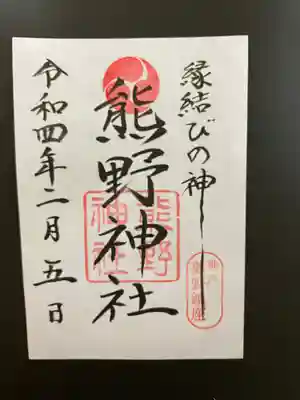 縁結びの神
熊野神社
熊野
神社
令和四年二月五日